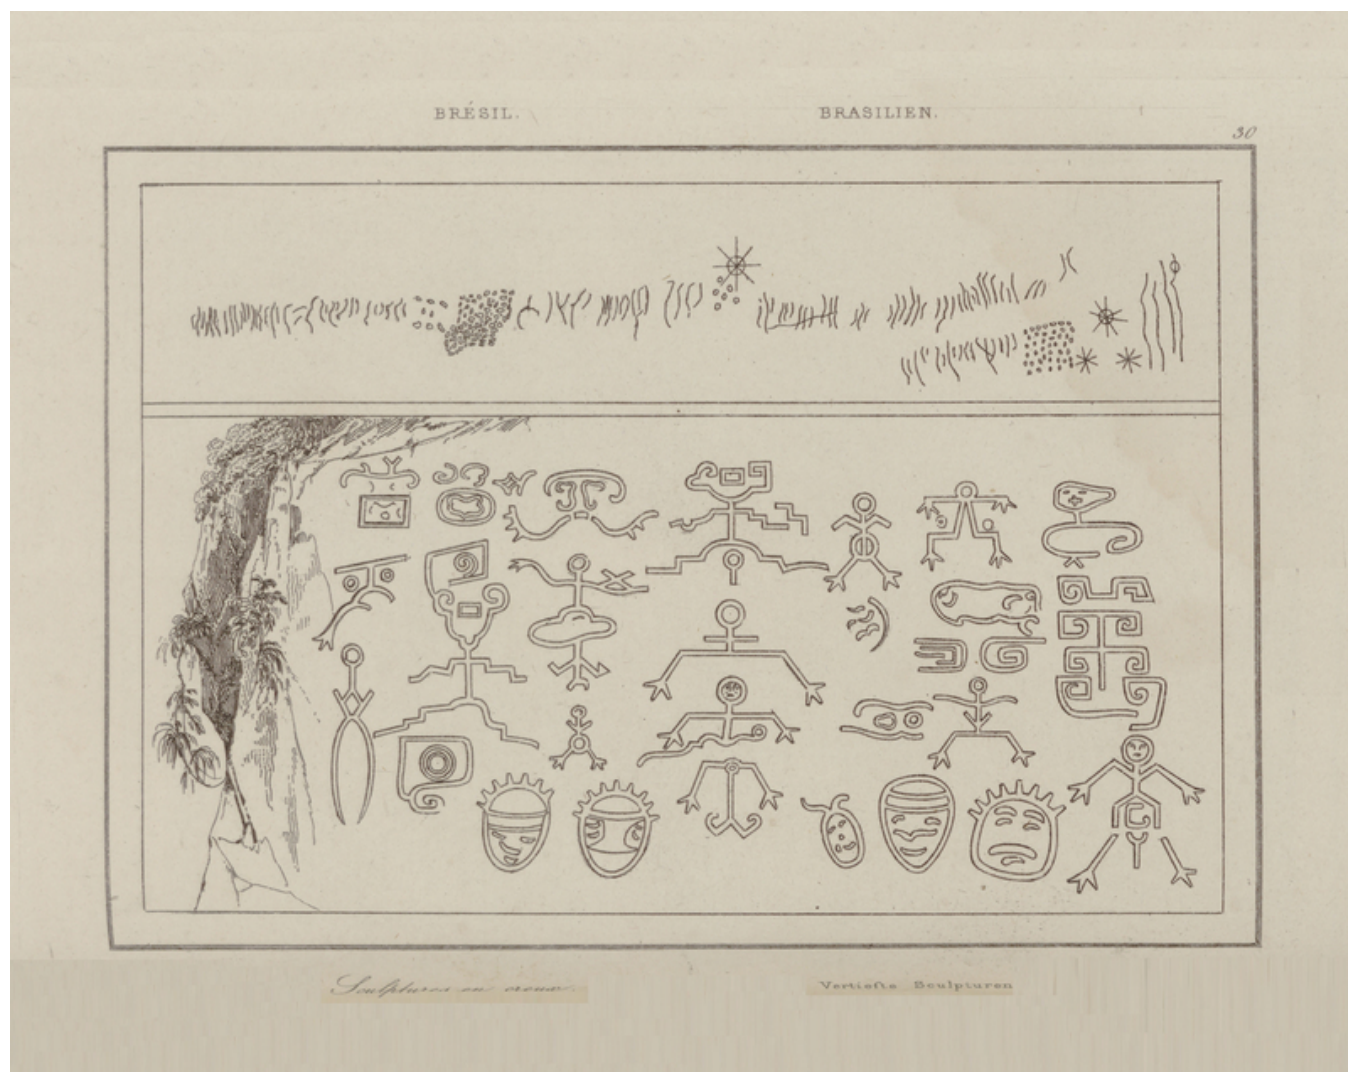 BRÉSIL.
BRASILIEN.
30
Sculptures en creux.
Vertiefte Sculpturen